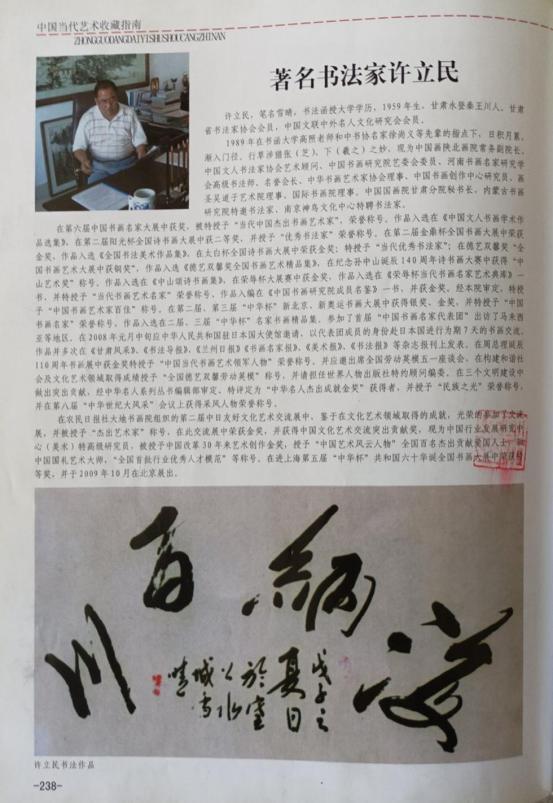 中国当代艺术收藏指南
ZHONGGUODANGDAIYISHUSHOUCANGZHINAN
著名书法家许立民
许立民，笔名雪晴，书法函授大学学历，1959年生，甘肃永登秦王川人、甘肃
省书法家协会会员，中国文联中外名人文化研究会会员。
1989年在书函大学高照老师和中书协名家徐尚义等先辈的指点下，日积月累，
渐入门径，行草涉猎张（芝）、下（羲之）之妙，现为中国陕北画院常务副院长、
中国文人书法家协会艺术顾问、中国书画研究院艺委会委员、河南书画名家研究学
会高级书法师、名誉会长、中华书画艺术家协会理事、中国画创作中心研究员、画
圣吴道子艺术院理事、国际书画院理事、中国国画院甘肃分院秘书长、内蒙古书画
研究院特邀书法家、南京神鸟文化中心特聘书法家。
在第六届中国书画名家大展中获奖，被特授予“当代中国杰出书画艺术家”，荣誉称号。作品入选在《中国文人书画学术作
品选集》，在第二届阳光杯全国诗书画大展中获二等奖，并授予“优秀书法家”荣誉称号。在第二届金鼎杯全国书画大展中荣获
金奖，作品入选《全国书法美术作品集》。在太白杯全国诗书画大展中荣获金奖；特授予“当代优秀书法家”；在德艺双馨奖“全
国书画艺术大展中获铜奖”，作品入选《德艺双馨奖全国书画艺术精品集》，在纪念孙中山诞辰140周年诗书画大赛中获得“中
山艺术奖”称号。作品入选在《中山颂诗书画集》。在荣辱杯大展赛中获金奖，作品入选在《荣辱杯当代书画名家艺术典库》一
书，并特授予“当代书画艺术名家”荣誉称号。作品入编在《中国书画研究院成员名鉴》一书，并获金奖。经本院审定，特授
予“中国书画艺术百家”荣誉称号。
110周年书画展中获金奖特授予“中国当代书画艺术领军人物”荣誉称号。并应邀出席全国劳动英模五一座谈会，在构建和谐社
会及文化艺术领域取得成绩授予“全国德艺双馨劳动英模”称号，并请担任世界人物出版社特约顾问编委。在三个文明建设中
做出突出贡献，经中华名人系列丛书编辑部审定，特评定为“中华名人杰出成就金奖”获得者，并授予“民族之光”荣誉称号，
并在第八届“中华世纪大风采”会议上获得采风人物荣誉称号。
在农民日报社大地书画院组织的第二届中日友好文化艺术交流展中，鉴于在文化艺术领域取得的成就，光荣的参加了交流
展，并被授予“杰出艺术家”称号。在此次交流展中荣获金奖，并获得中国文化艺术交流突出贡献奖，现为中国行业发展研究中
心（美术）特高级研究员，被授予中国改革30年来艺术创作金奖，授予“中国艺术风云人物”全国百名杰出贡献爱国人士
中国国礼艺术大师，“全国首批行业优秀人才模范”等称号。在进上海第五届“中华杯”共和国六十华诞全国书画大展中荣获特
等奖，并于2009年10月在北京展出。
许立民书法作品
-238-